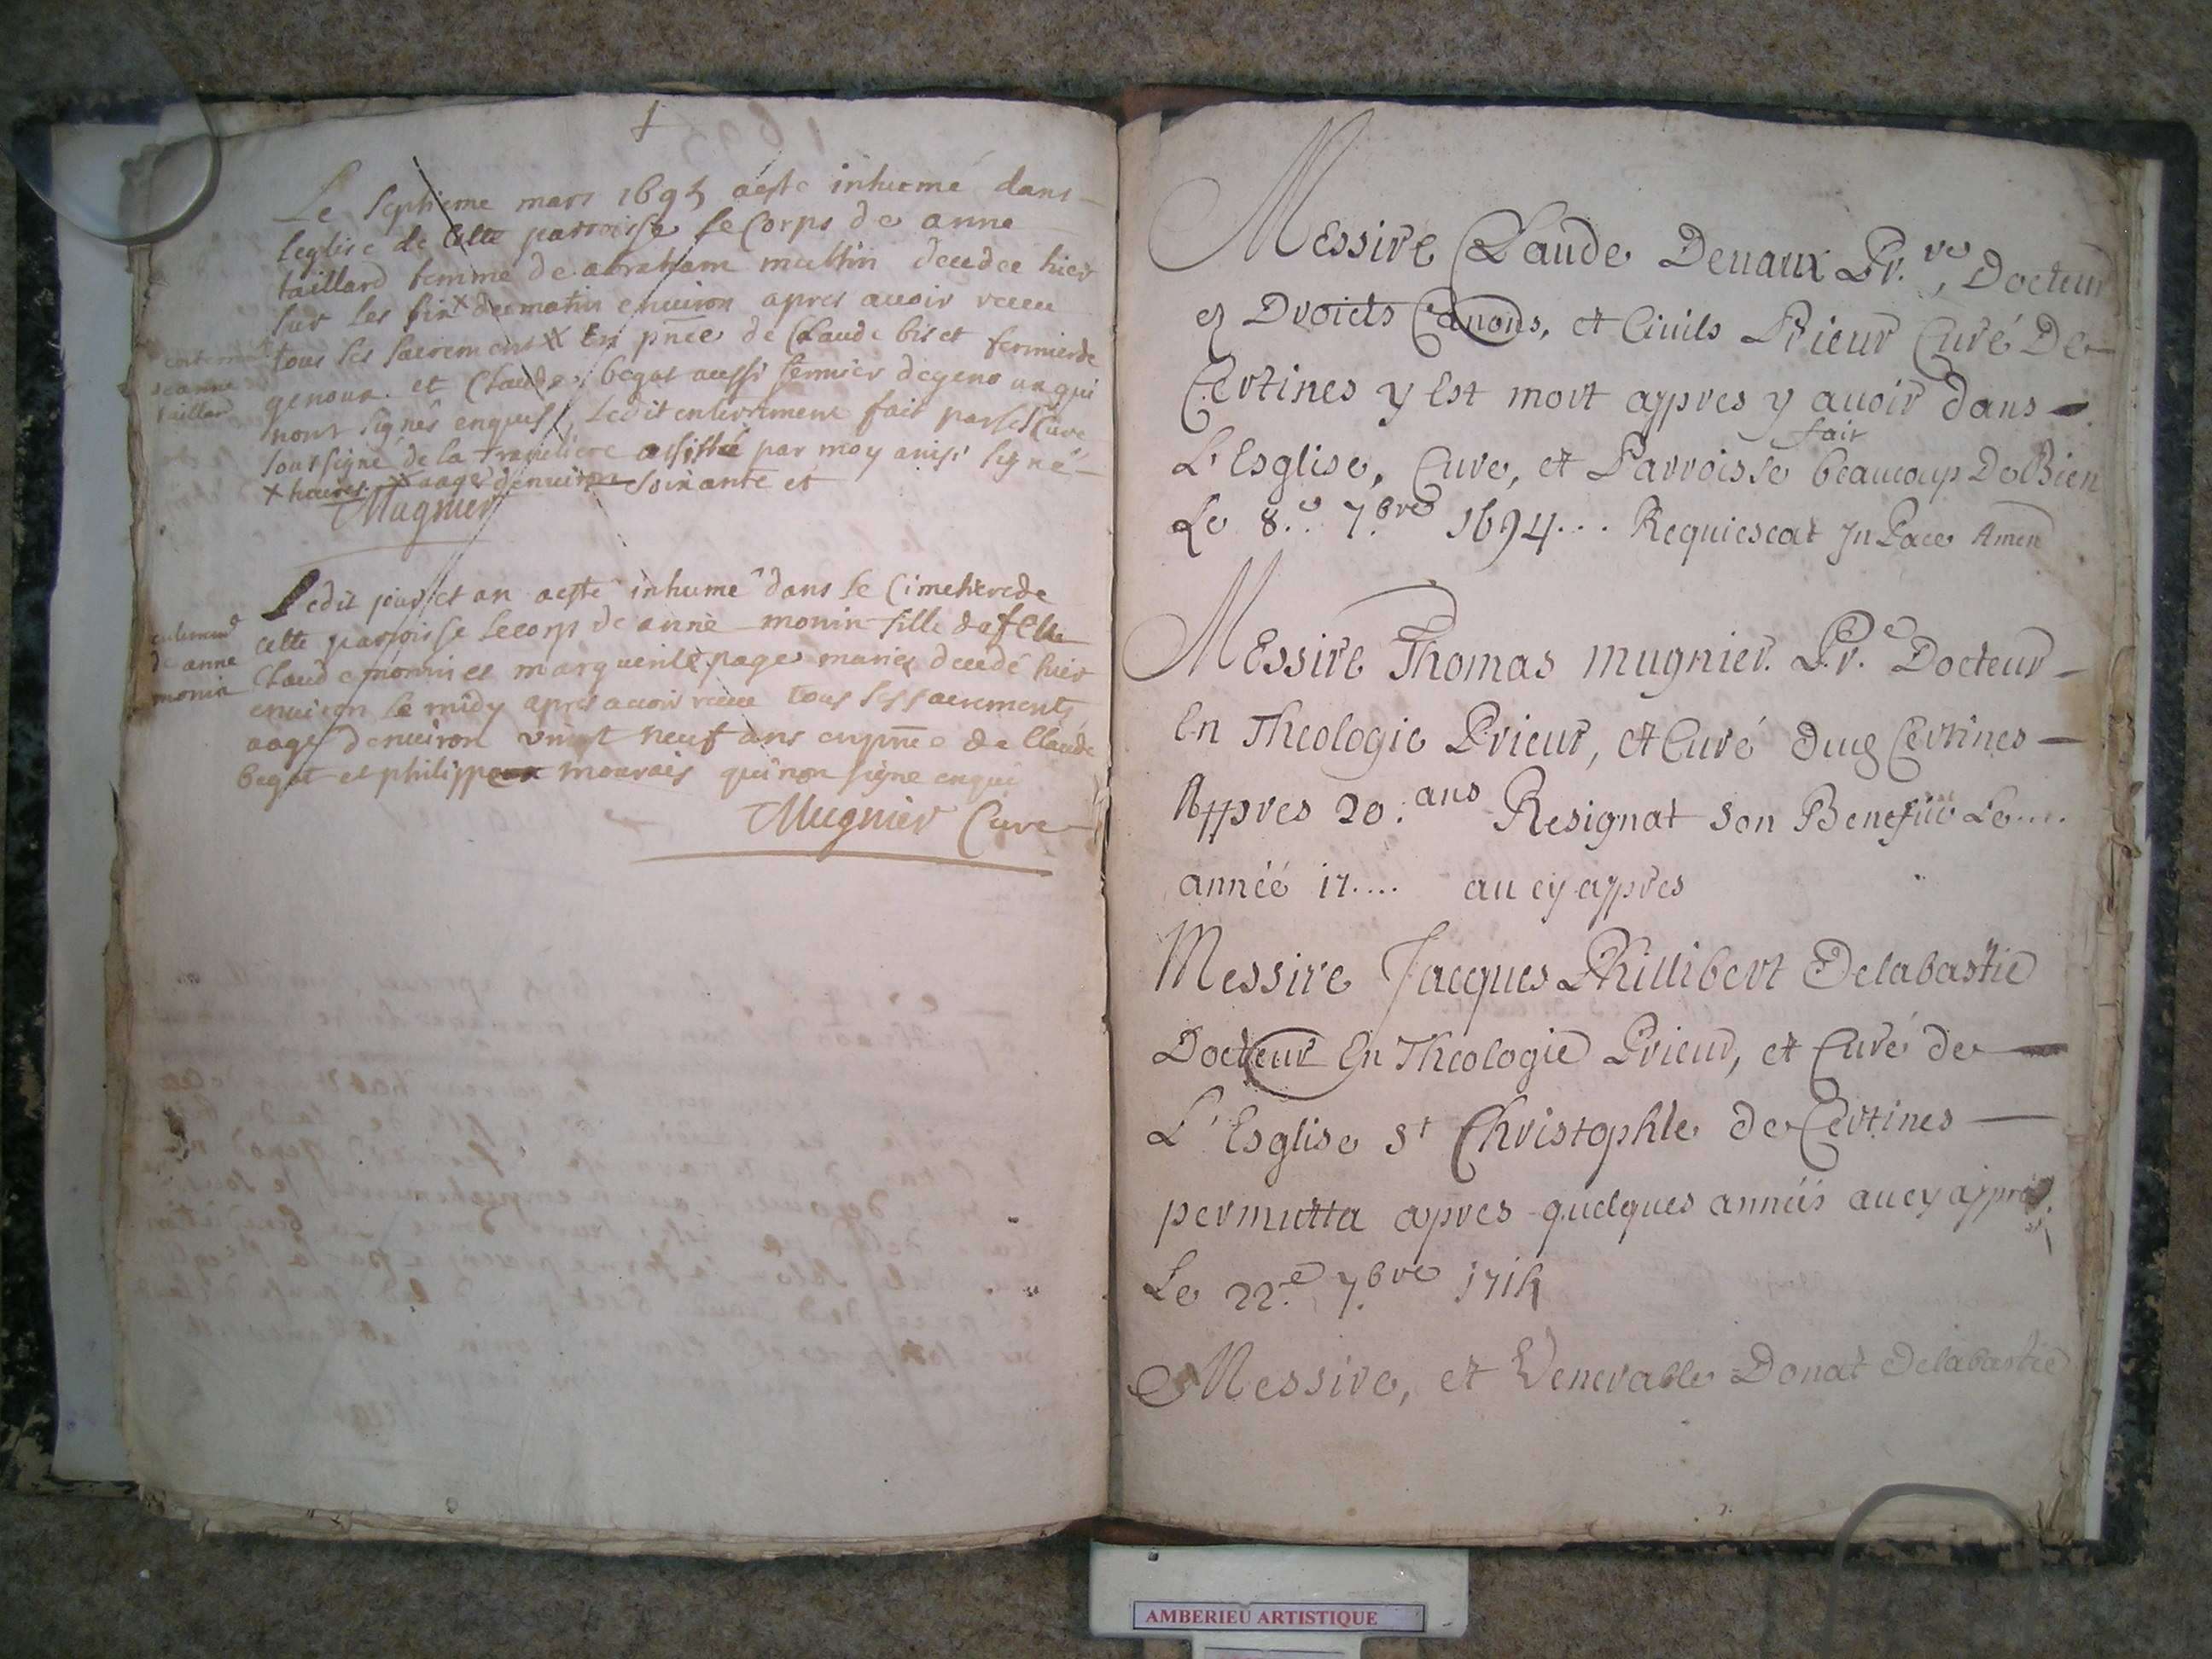 Le septieme mars 1695 aeste inhumé dans
leglise de cette parroisse le Corps de anne
taillard femme de abraham decedee hier
sur les six du matin environ apres auoir receu
tous ses sacremens En pnce de Claude biset fermier de
genoux et Claude begot aussi fermier de genoux qui
nont signés enquis, Ledit enterrement fait par le s Cure
soussigné de la assisté par moy ainsi signé
x heures x aagé denuiron soixante et
Mugnier
enterremt
de anne
taillard
Ledit jour et an aeste inhumé dans le Cimetiere de
cette parroisse le corps de anne monin fille de
Claude monin et marguerite page mariés decedé hier
enuiron le midy apres auoir receu tous ses sacrements
aagé denuiron vingt neuf ans en pnce de Claude
begot et philippe mourais qui non signe enquis
Mugnier Cure
enterremt
de anne
monin
Messire Claude Deuaux Pr.re, Docteur
es Droicts Canons, et Ciuils Prieur Curé De
Certines y Est mort appres y auoir dans
L'Esglise, Cure, et Parroisse fait beaucoup De Bien
Le 8.e 7.bre 1694... Requiescat In Pace Amen
Messire Thomas mugnier. Pr.e Docteur
En Theologie Prieur, et Curé dud Certines
Appres 20.ans Resignat son Benefice Le....
année 17.... au cy appres
Messire Jacques Phillibert Delabastie
Docteur En Theologie Prieur, et Curé de
L'Esglise st Christophle de Certines
permutta apres quelques années au cy appres
Le 22.e 7.bre 1714
Messire, et Venerable Donat Delabastie
AMBERIEU ARTISTIQUE